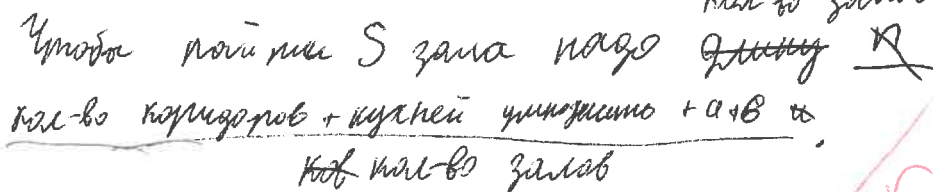 кол-во залов
Чтобы найти S зала надо длину
кол-во коридоров + кухней умножить + a+b
кол-во залов